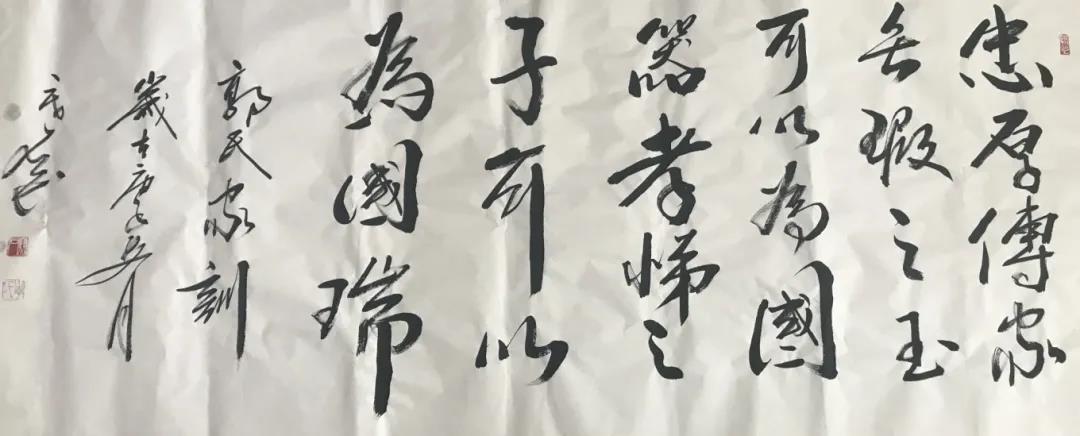 忠厚傳家
無瑕之玉
可以為國
器孝悌之
子可以
為國瑞
郭氏家訓
歲在庚子夏月